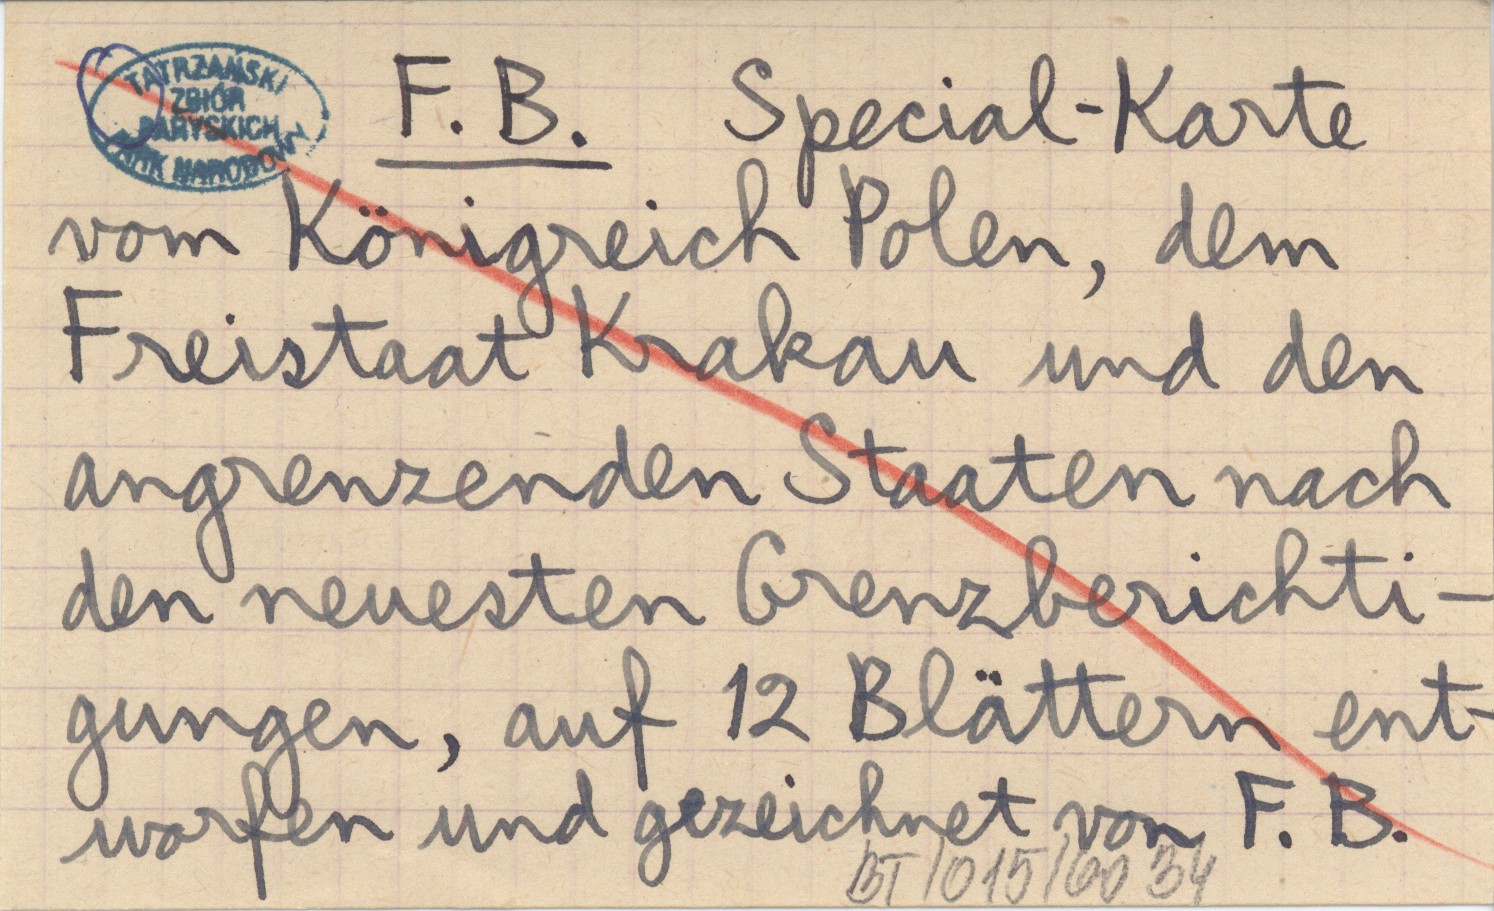 TATRZAŃSKI
ZBIÓR
PARYSKICH
PARK NARODOWY
F. B. Special-Karte
vom Königreich Polen, dem
Freistaat Krakau und den
angrenzenden Staaten nach
den neuesten Grenzberichti-
gungen, auf 12 Blättern ent-
worfen und gezeichnet von F. B.
BT/015/60 34